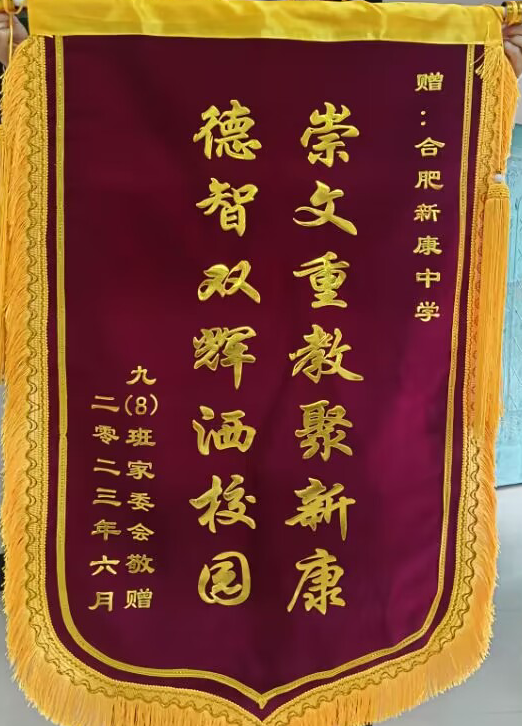 赠：合肥新康中学
崇文重教聚新康
德智双辉洒校园
九(8)班家委会敬赠
二零二三年六月